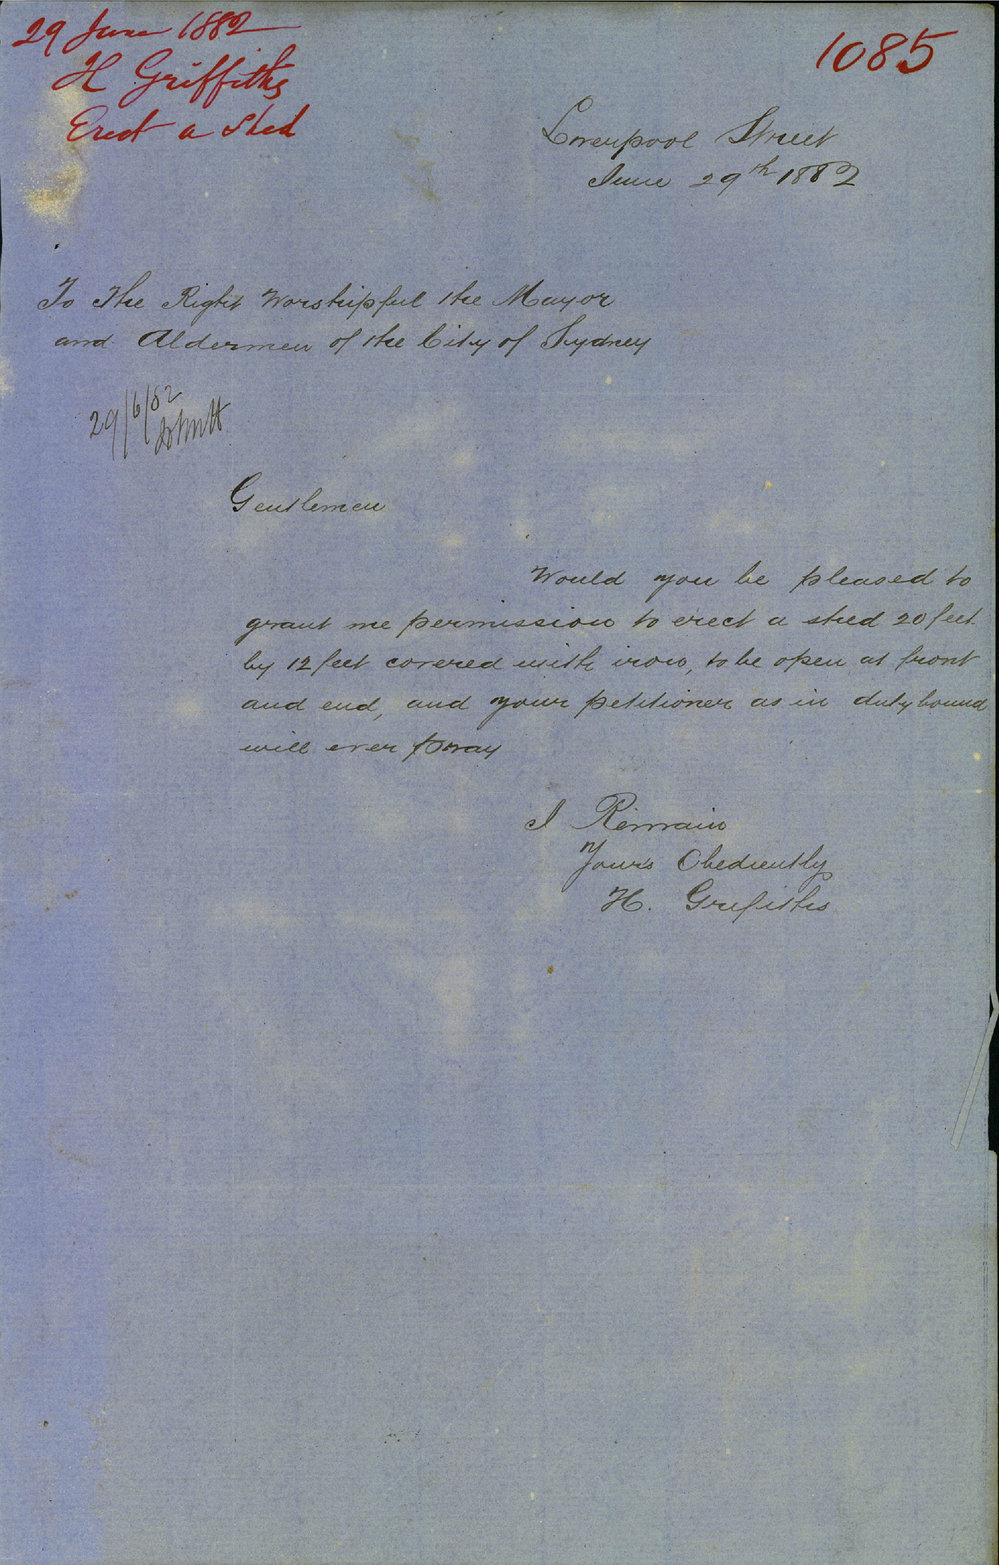 29 June 1882
H Griffiths
Erect a Shed
1085
Liverpool Street
June 29th 1882
To The Right Worshipful the Mayor
and Aldermen of the City of Sydney
29/6/82
Gentlemen
Would you be pleased to
grant me permission to erect a shed 20 feet
by 12 feet covered with iron, to be open at front
and end, and your petitioner as in duty bound
will ever pray
I Remain
Yours Obediently
H. Griffiths